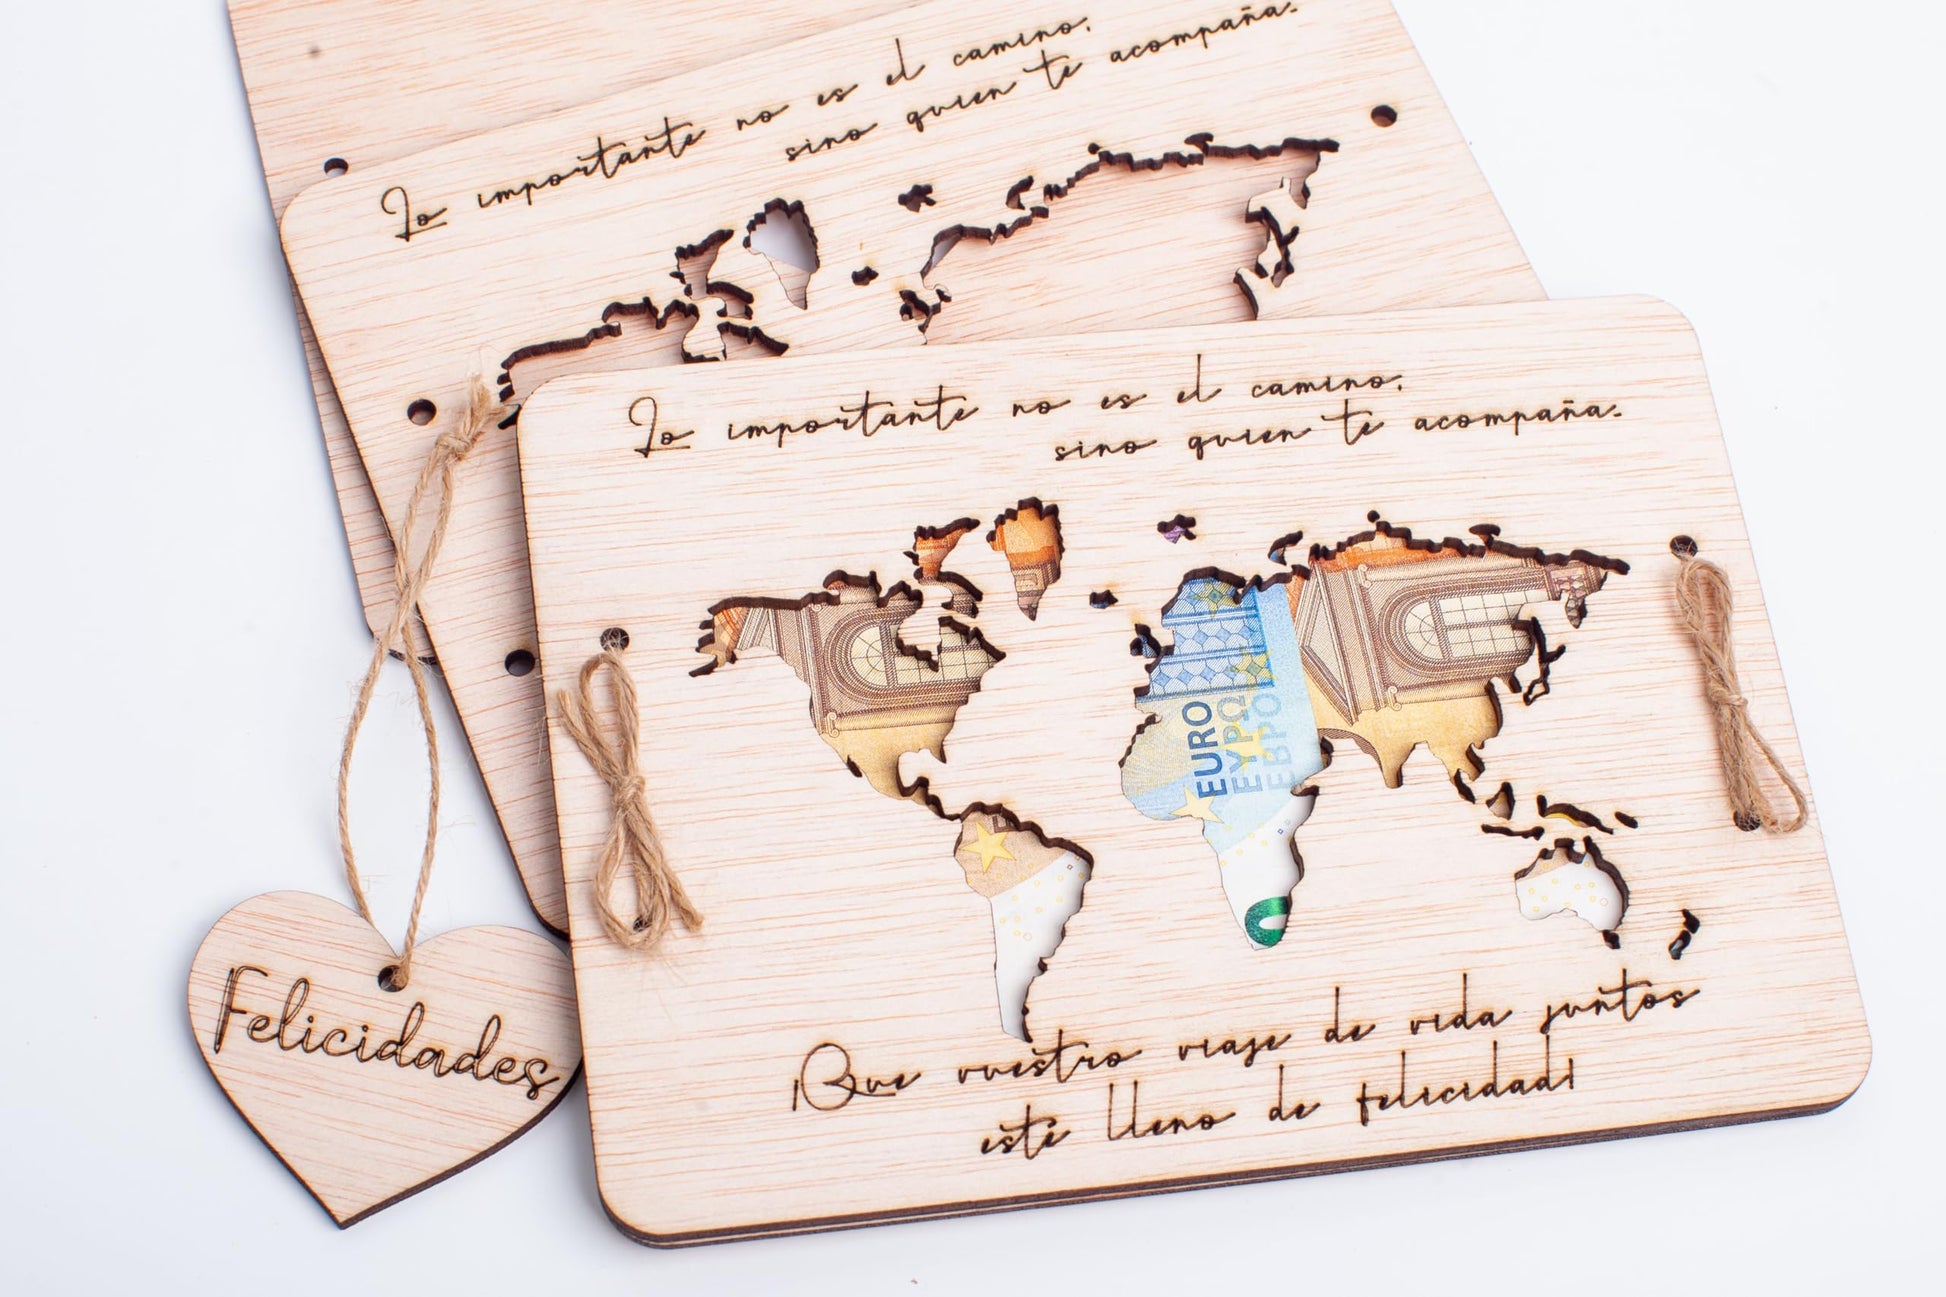 Lo importante no es el camino,
sino quien te acompaña.
Lo importante no es el camino,
sino quien te acompaña.
EURO
ΕΥΡΩ
ЕВРО
¡Que vuestro viaje de vida juntos
esté lleno de felicidad!
Felicidades